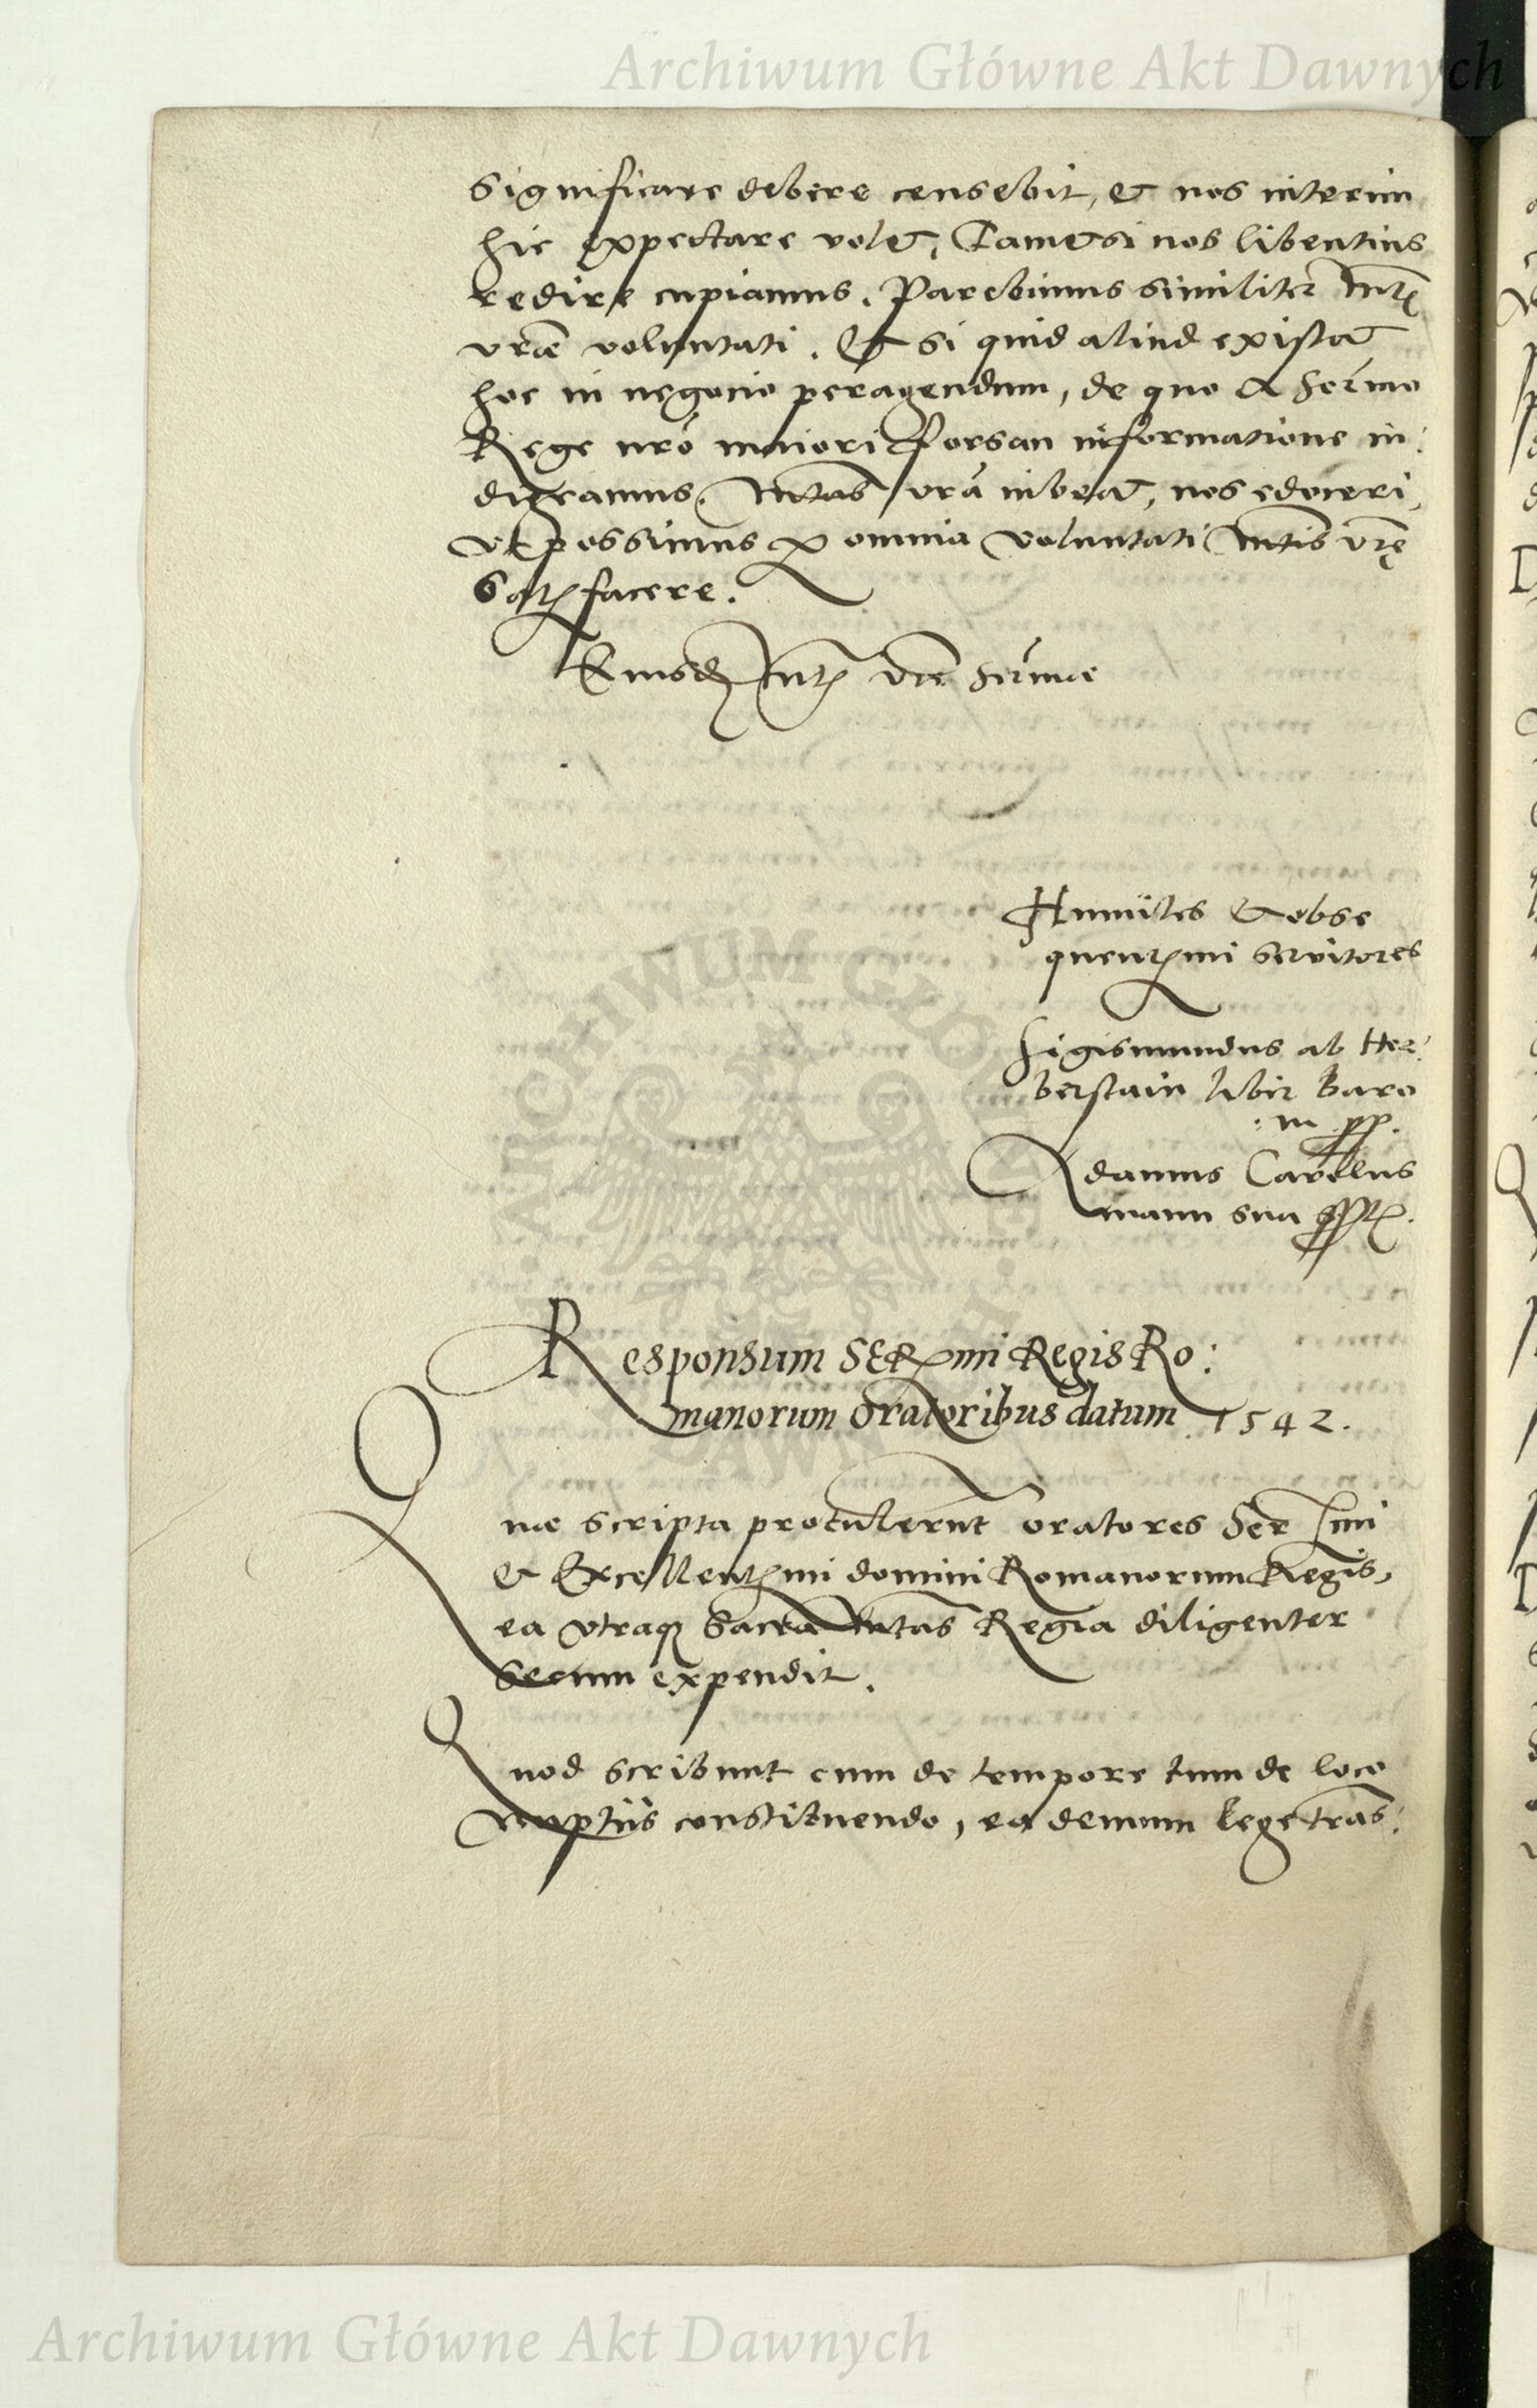 Archiwum Główne Akt Dawnych
significare debere censebit, & nos interim
hic expectare volet, Tametsi nos libentius
redire cupiamus. Parebimus similiter Mtis
vrae voluntati. Et si quid aliud existat
hoc in negocio peragendum, de quo a Sermo
Rege nro maiori forsan informatione in:
digeamus. Mtas vra iubeat, nos edoceri,
vt possimus p omnia voluntati Mtis vrę
satisfacere.
Eiusdem Mtis vrae Sermae
Humiles & obse
quentissimi servitores
Sigismundus ab Her:
berstain liber Baro
: m pp.
Adamus Carolus
manu sua sspt.
ARCHIWUM GŁÓWNE
AKT DAWNYCH
Responsum SERmi Regis Ro:
manorum Oratoribus datum 1542.
Quae scripta protulerunt oratores Ser mi
& Excellentissimi domini Romanorum Regis,
ea vtraque Sacra Mtas Regia diligenter
secum expendit.
Quod scribunt cum de tempore tum de loco
Nuptiis constituendo, ea demum lege tras:
Archiwum Główne Akt Dawnych